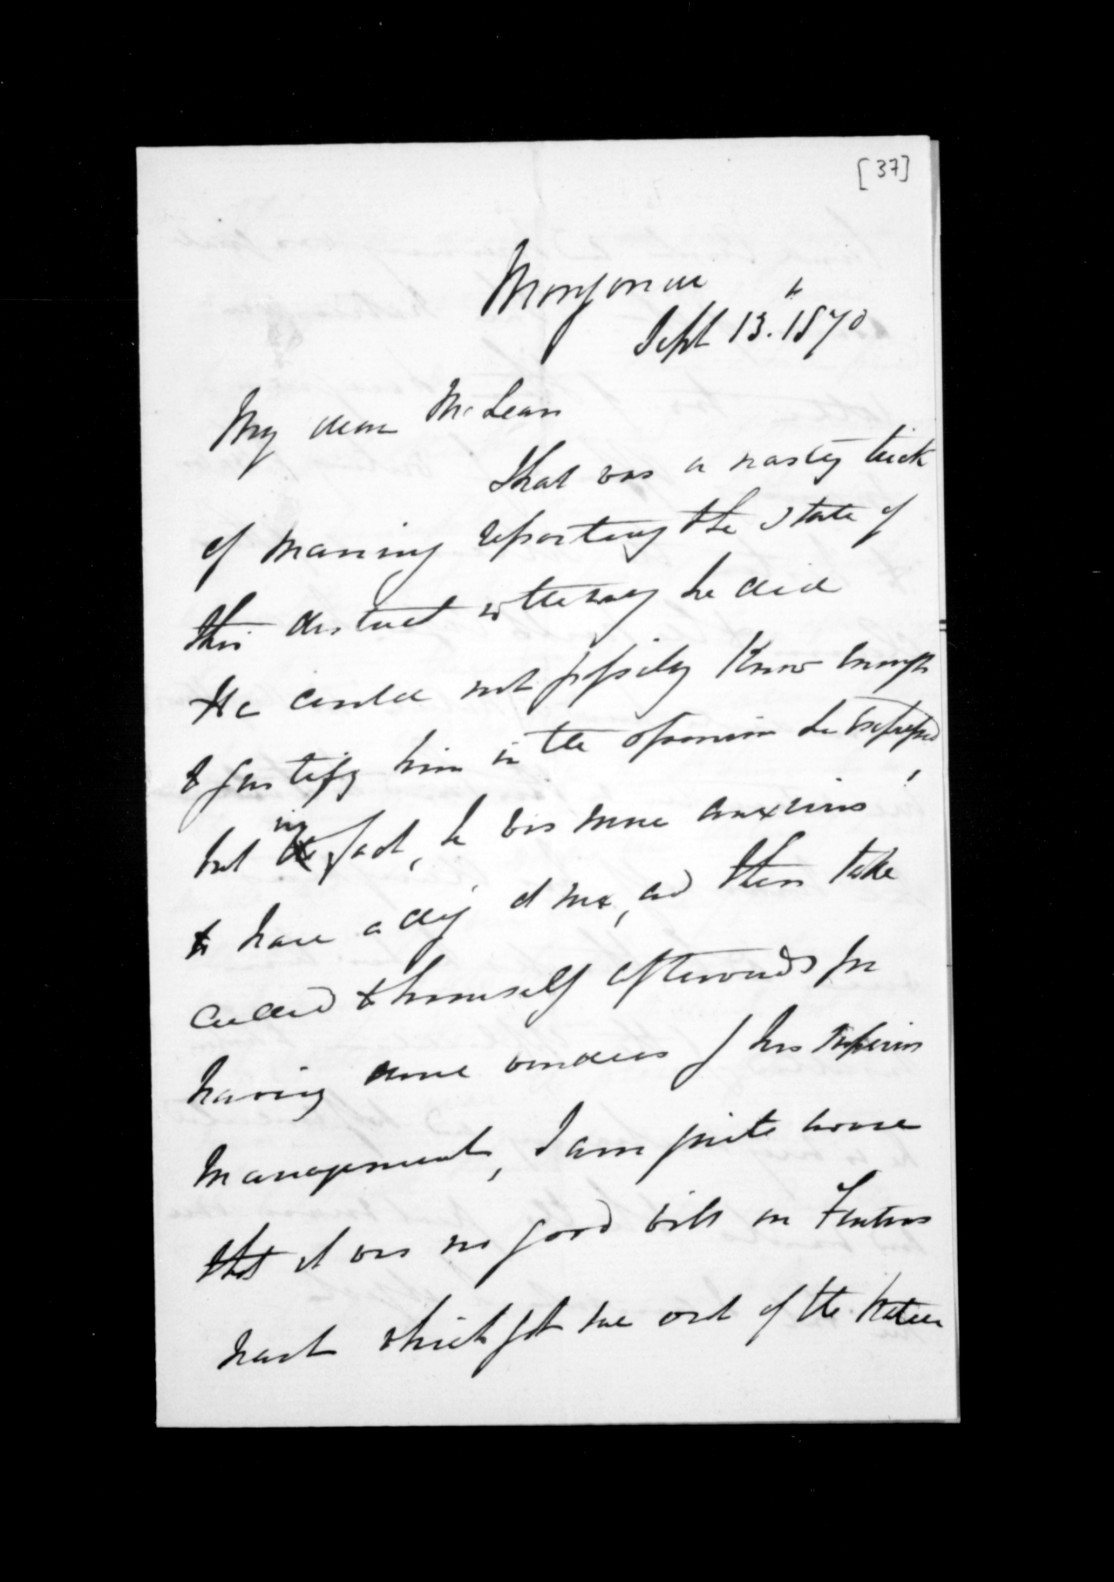 [37]
Mongonui
Sept 13th. 1870
My dear McLean
That was a nasty trick
of Manning reporting the state of
this district in the way he did
He could not possibly know enough
to justify him in the opinion he expressed,
but in fact, he was more anxious
to have a dig at me, and then take
credit to himself afterwards for
having done wonders by his superior
management, I am quite aware
that it was no good will on
part which got me out of the Native